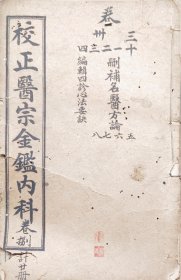 卷
三十
卅一二三四
刪補名醫方論五六七八
編輯四診心法要訣
校正醫宗金鑑內科
卷捌
計廿冊